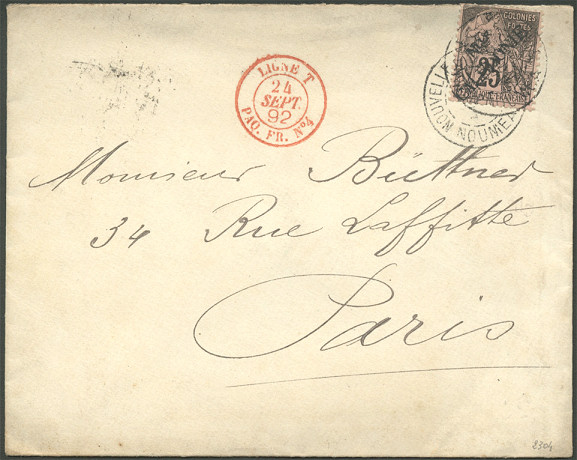 LIGNE T
24
SEPT.
92
PAQ. FR. Nº4
COLONIES
POSTES
25
NOUVELLE
NOUMEA
Monsieur Büttner
34 Rue Laffitte
Paris
8304